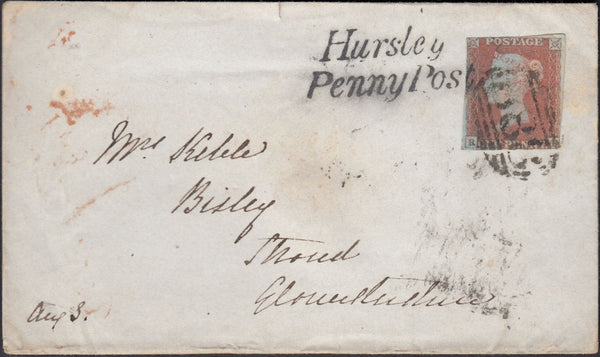 Hursley
Penny Post
POSTAGE
Mrs Keble
Bisley
Stroud
Gloucestershire
Aug 3.